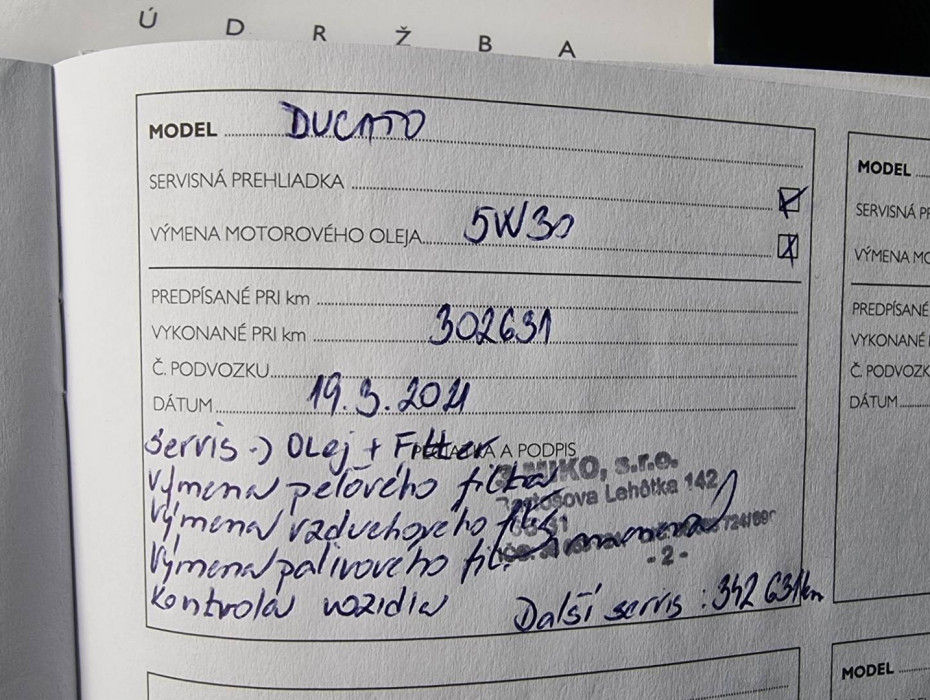 Ú D R Ž B A
MODEL DUCATO
SERVISNÁ PREHLIADKA
VÝMENA MOTOROVÉHO OLEJA 5W30
PREDPÍSANÉ PRI km
VYKONANÉ PRI km 302631
Č. PODVOZKU
DÁTUM 19.3.2021
PEČIATKA A PODPIS
Servis -) Olej + Filter
Výmena peľového filtra
Výmena vzduchového
Výmena palivového
Kontrola vozidla
Další servis : 342 631km
MIKO, s.r.o.
Lehôtka 142
- 2 -
MODEL
SERVISNÁ PR
VÝMENA MO
PREDPÍSANÉ
VYKONANÉ
Č. PODVOZK
DÁTUM
MODEL